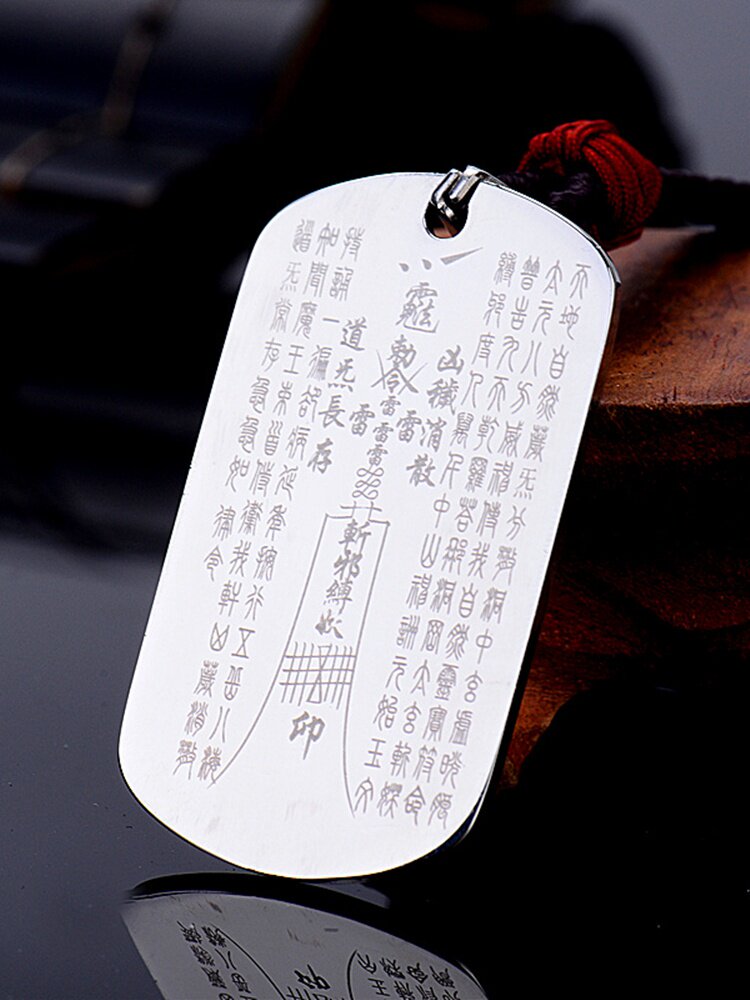 天地自然薉炁分散洞中玄虛晄朖
太元八方威神使我自然靈寶符命
普告九天乾羅答那洞罡太玄斬妖
縛邪度人萬千中山神詶元始玉文
凶穢消散
勅令
雷雷雷
雷
雷
斬邪縛妖
印
道炁長存
持誦一遍卻病延年按行五岳八海
知聞魔王束首侍衛我軒凶薉消散
道炁常存急急如律令